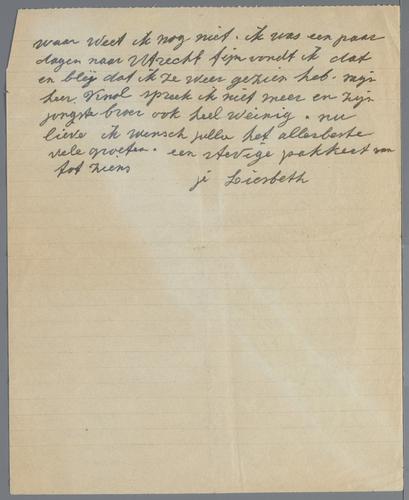 waar weet ik nog niet. ik was een paar
dagen naar Utrecht fijn vondt ik dat
en blij dat ik ze weer gezien heb. mijn
heer. Knol spreek ik niet meer en zijn
jongste broer ook heel weinig. nu
lieve ik wensch jullie het allerbeste
vele groeten. een stevige pakkert van
tot ziens
je Liesbeth